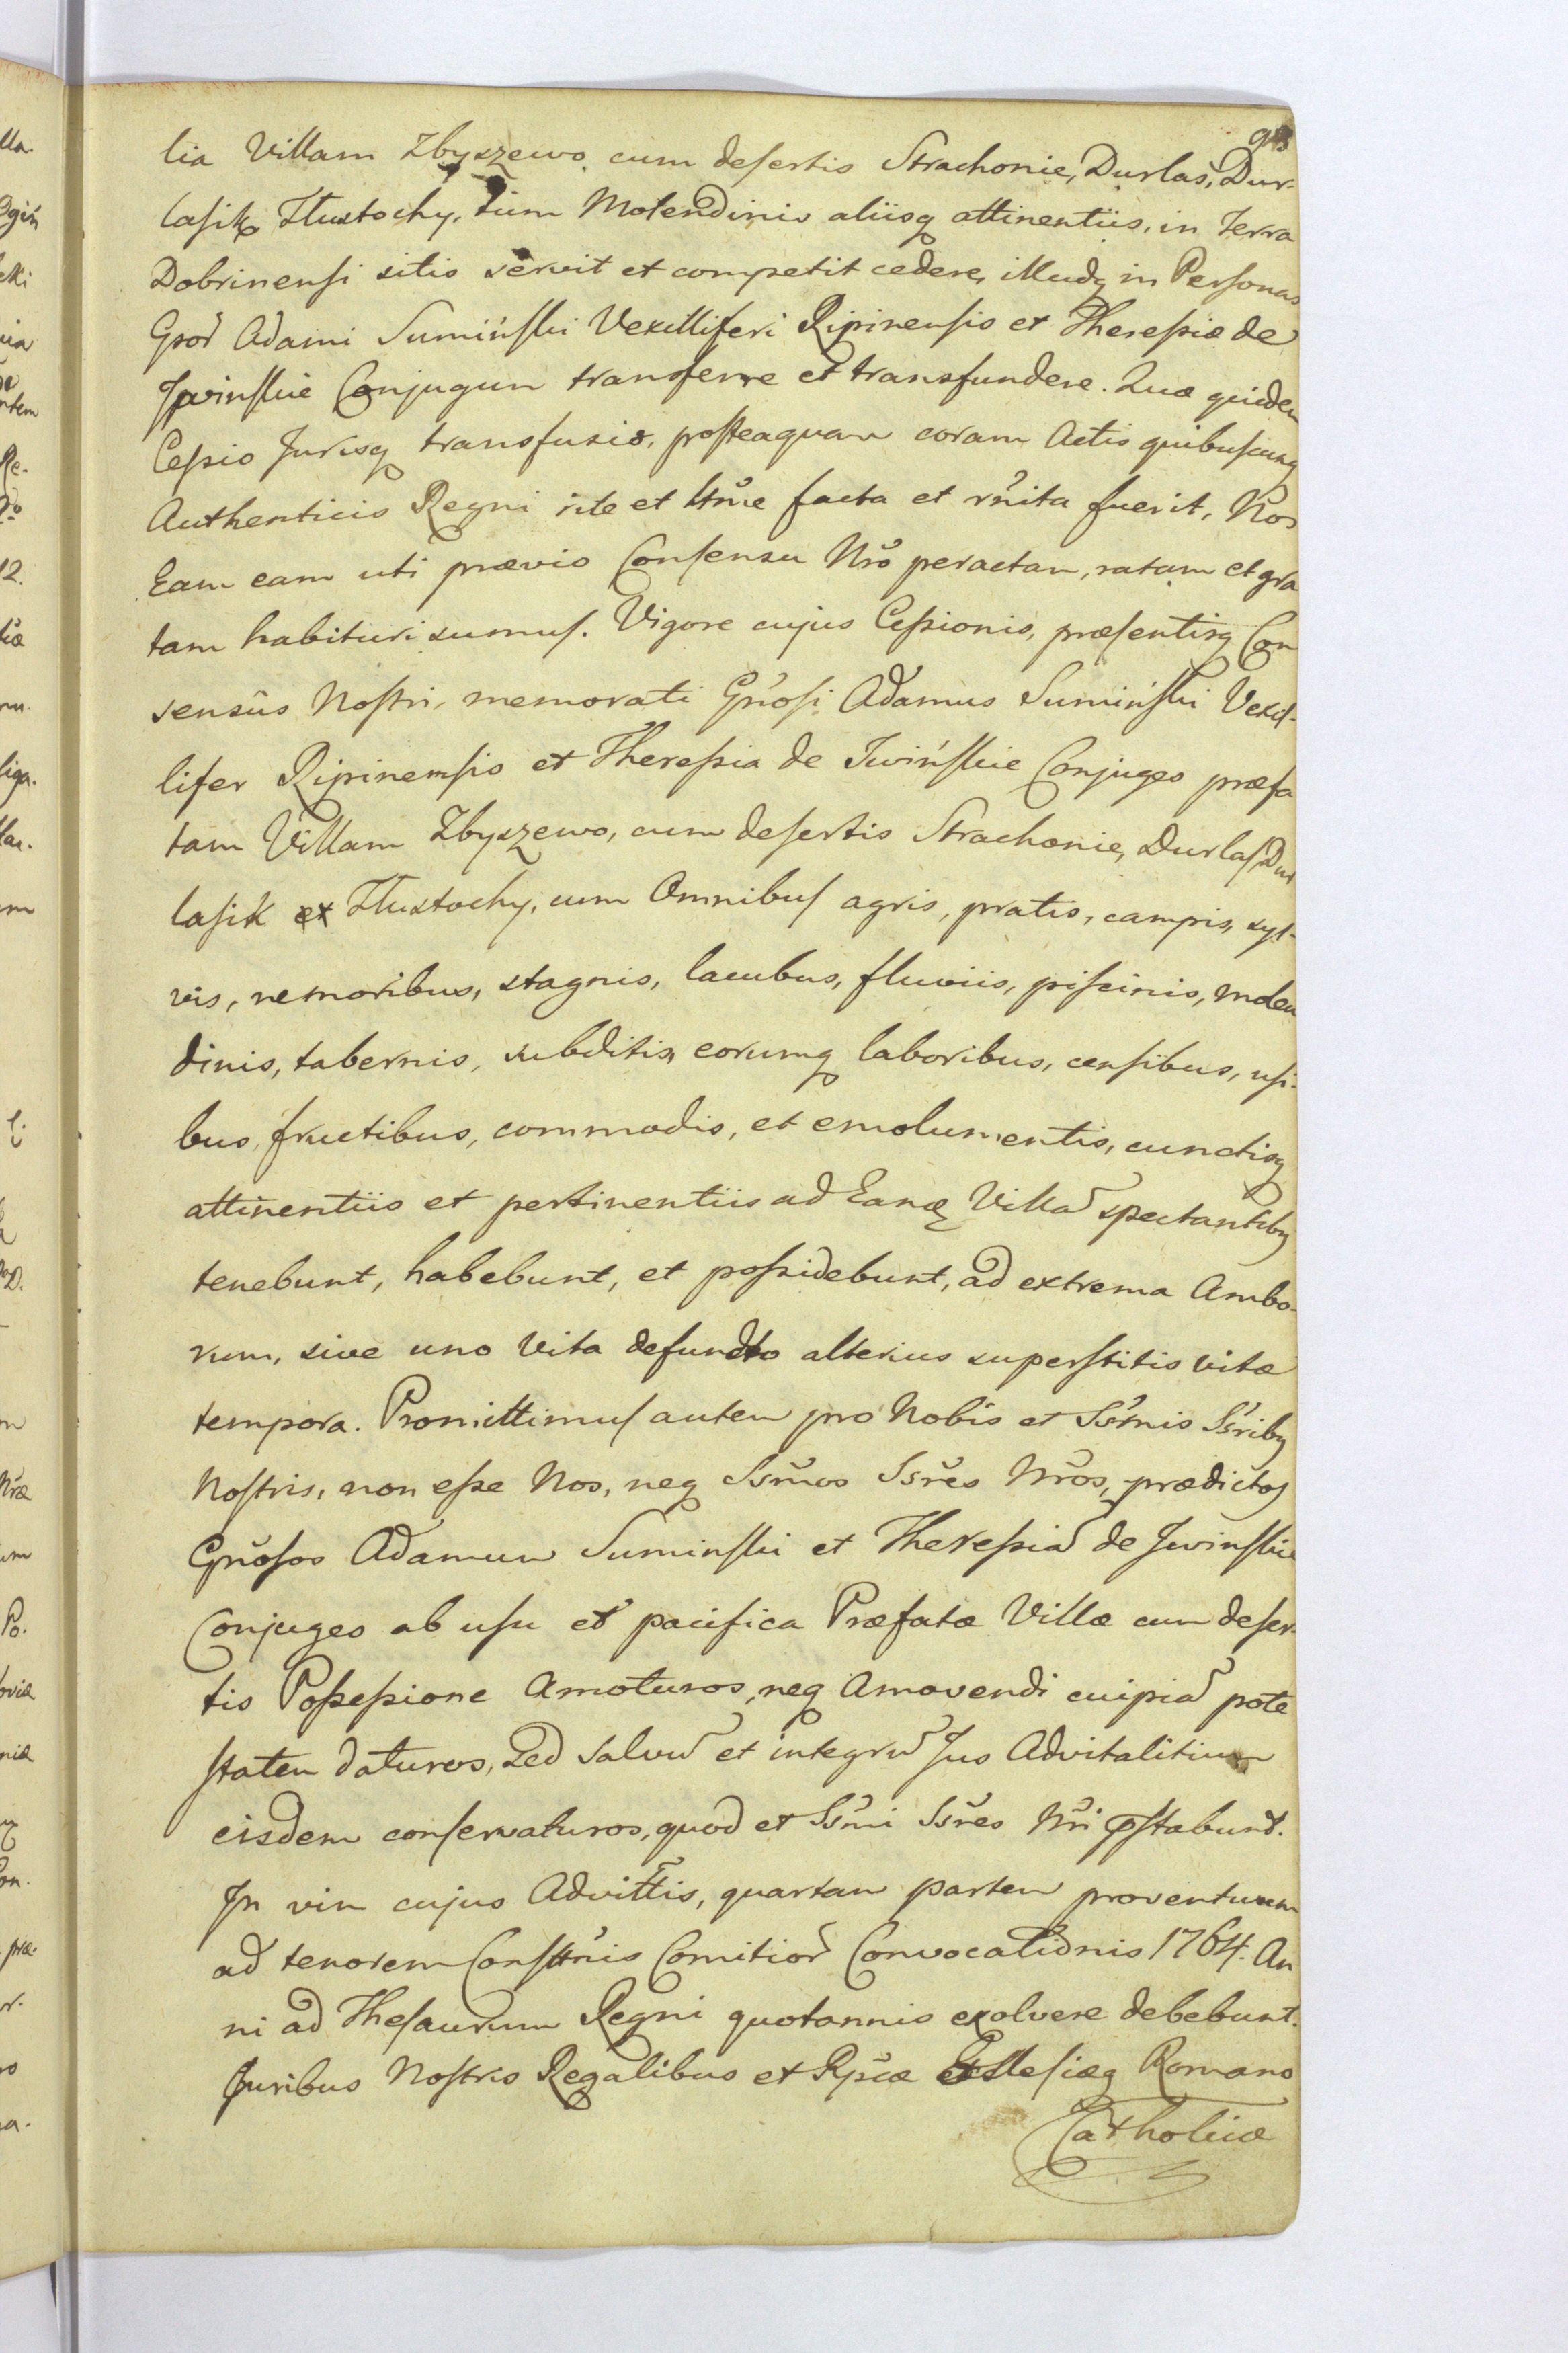 lia Villam Zbyszewo cum desertis Strachonie, Durlaś, Dur-
lasik Tłustochy, tum Molendinis aliisq attinentiis, in Terra
Dobrinensi sitis servit et competit cedere, illudq in Personas
Gsor̃ Adami Sumiński Vexilliferi Ripinensis et Theressiæ de
Iwinskie Conjugum transferre et transfundere. Quæ quidem
Cessio Jurisq transfusio, posteaquam coram Actis quibuscunq
Authenticis Regni rite et ltm̃e facta et rñita fuerit, Nos
Eam eam uti prævio Consensu Nr̃o peractam, ratam et gra
tam habituri sumus. Vigore cujus Cessionis, præsentisq Con
sensûs Nostri, memorati Gñosi Adamus Sumiński Vexil-
lifer Ripinensis et Theressia de Iwińskie Conjuges præfa
tam Villam Zbyszewo, cum desertis Strachonie, Durlas Dur
lasik et Tłustochy, cum Omnibus agris, pratis, campis, syl-
vis, nemoribus, stagnis, lacubus, fluviis, piscinis, molen
dinis, tabernis, subditis, eorumq laboribus, censibus, usi-
bus, fructibus, commodis, et emolumentis, cunctisq
attinentiis et pertinentiis ad Eandē Villam̃ spectantibq
tenebunt, habebunt, et possidebunt, ad extrema Ambo-
rum, sive uno vita defuncto alterius superstitis vitæ
tempora. Promittimus autem pro Nobis et Ssm̃is Ssr̃ibq
Nostris, non esse Nos, neq Ssm̃os Ssr̃es Nr̃os, prædictos
Gñosos Adamum Suminski et Theressiam̃ de Iwinskie
Conjuges ab usu et pacifica Præfatæ Villæ cum deser-
tis Possessione Amoturos, neq Amovendi cuipiam̃ pote
statem daturos, Sed salvum̃ et integrum̃ Jus Advitalitium
eisdem conservaturos, quod et Ssm̃i Ssr̃es Nr̃i pr̃stabunt.
In vim cujus Advittis, quartam partem proventuum
ad tenorem Consttñis Comitior̃ Convocationis 1764. An
ni ad Thesaurum Regni quotannis exolvere debebunt.
Juribus Nostris Regalibus et Rp̃cæ Ecclesiæq Romano
Catholicæ